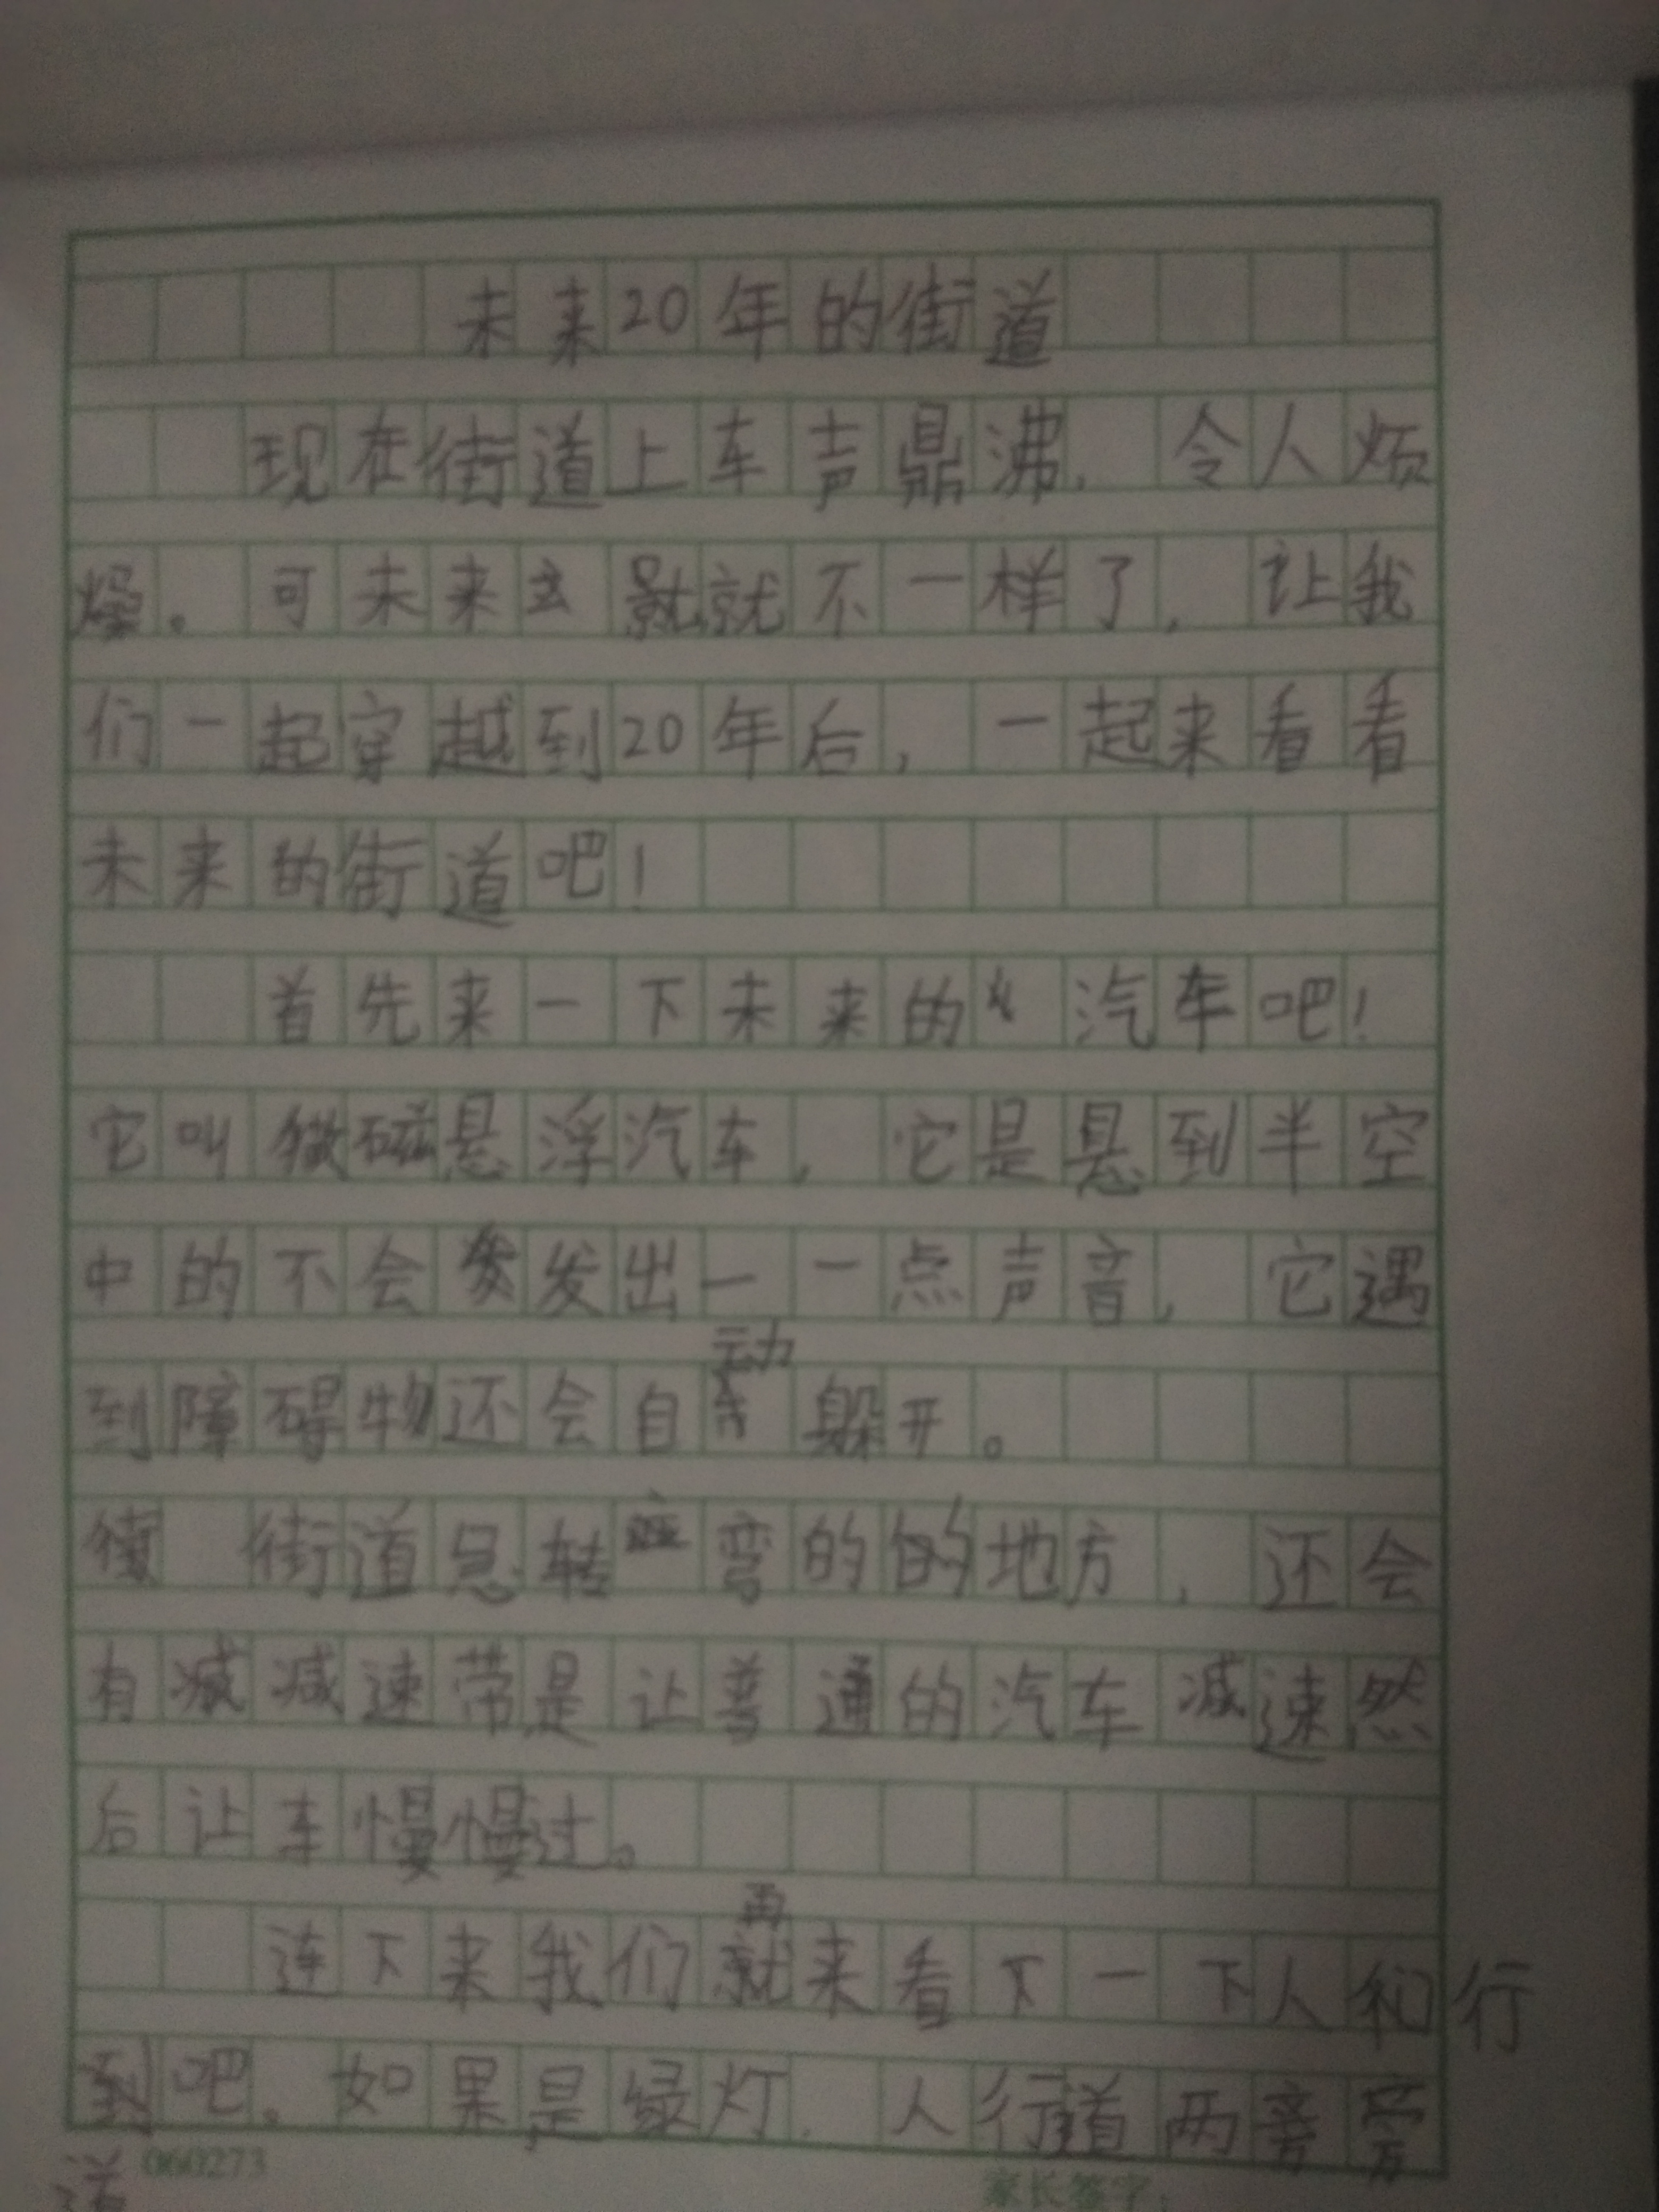 未来20年的街道
现在街道上车声鼎沸，令人烦
燥。可未来就不一样了，让我
们一起穿越到20年后，一起来看看
未来的街道吧！
首先来一下未来的汽车吧！
它叫磁悬浮汽车，它是悬到半空
中的不会发出一一点声音，它遇
到障碍物还会自动躲开。
街道急转弯的的地方，还会
有减速带是让普通的汽车减速然
后让车慢慢过。
连下来我们再来看下一下人行
道吧。如果是绿灯，人行道两旁
060273
家长签字：